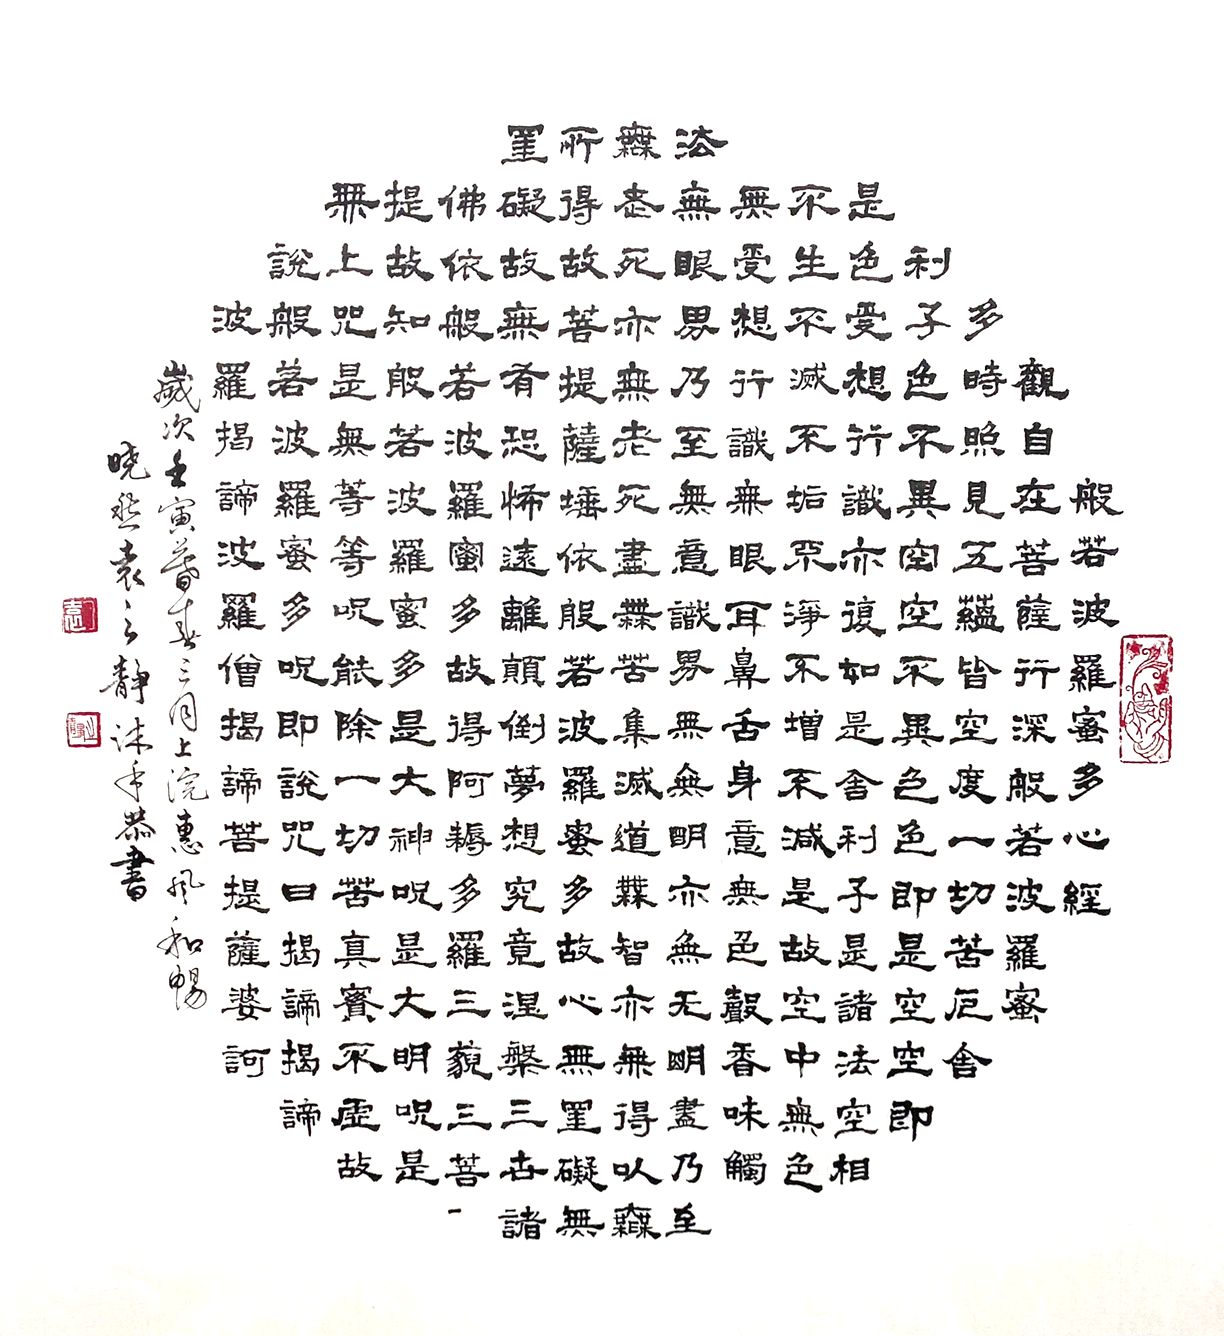 般若波羅蜜多心經
觀自在菩薩行深般若波羅蜜
多時照見五蘊皆空度一切苦厄舍
利子色不異空空不異色色即是空空即
是色受想行識亦復如是舍利子是諸法空相
不生不滅不垢不淨不增不減是故空中無色
無受想行識無眼耳鼻舌身意無色聲香味觸
法無眼界乃至無意識界無無明亦無无明盡乃至
無老死亦無老死盡無苦集滅道無智亦無得以無
所得故菩提薩埵依般若波羅蜜多故心無罣礙無
罣礙故無有恐怖遠離顛倒夢想究竟涅槃三世諸
佛依般若波羅蜜多故得阿耨多羅三藐三菩
提故知般若波羅蜜多是大神呪是大明呪是
無上咒是無等等呪能除一切苦真實不虛故
說般若波羅蜜多呪即說咒曰揭諦揭諦
波羅揭諦波羅僧揭諦菩提薩婆訶
歲次壬寅暮春三月上浣惠風和暢
曉然袁之靜沐手恭書